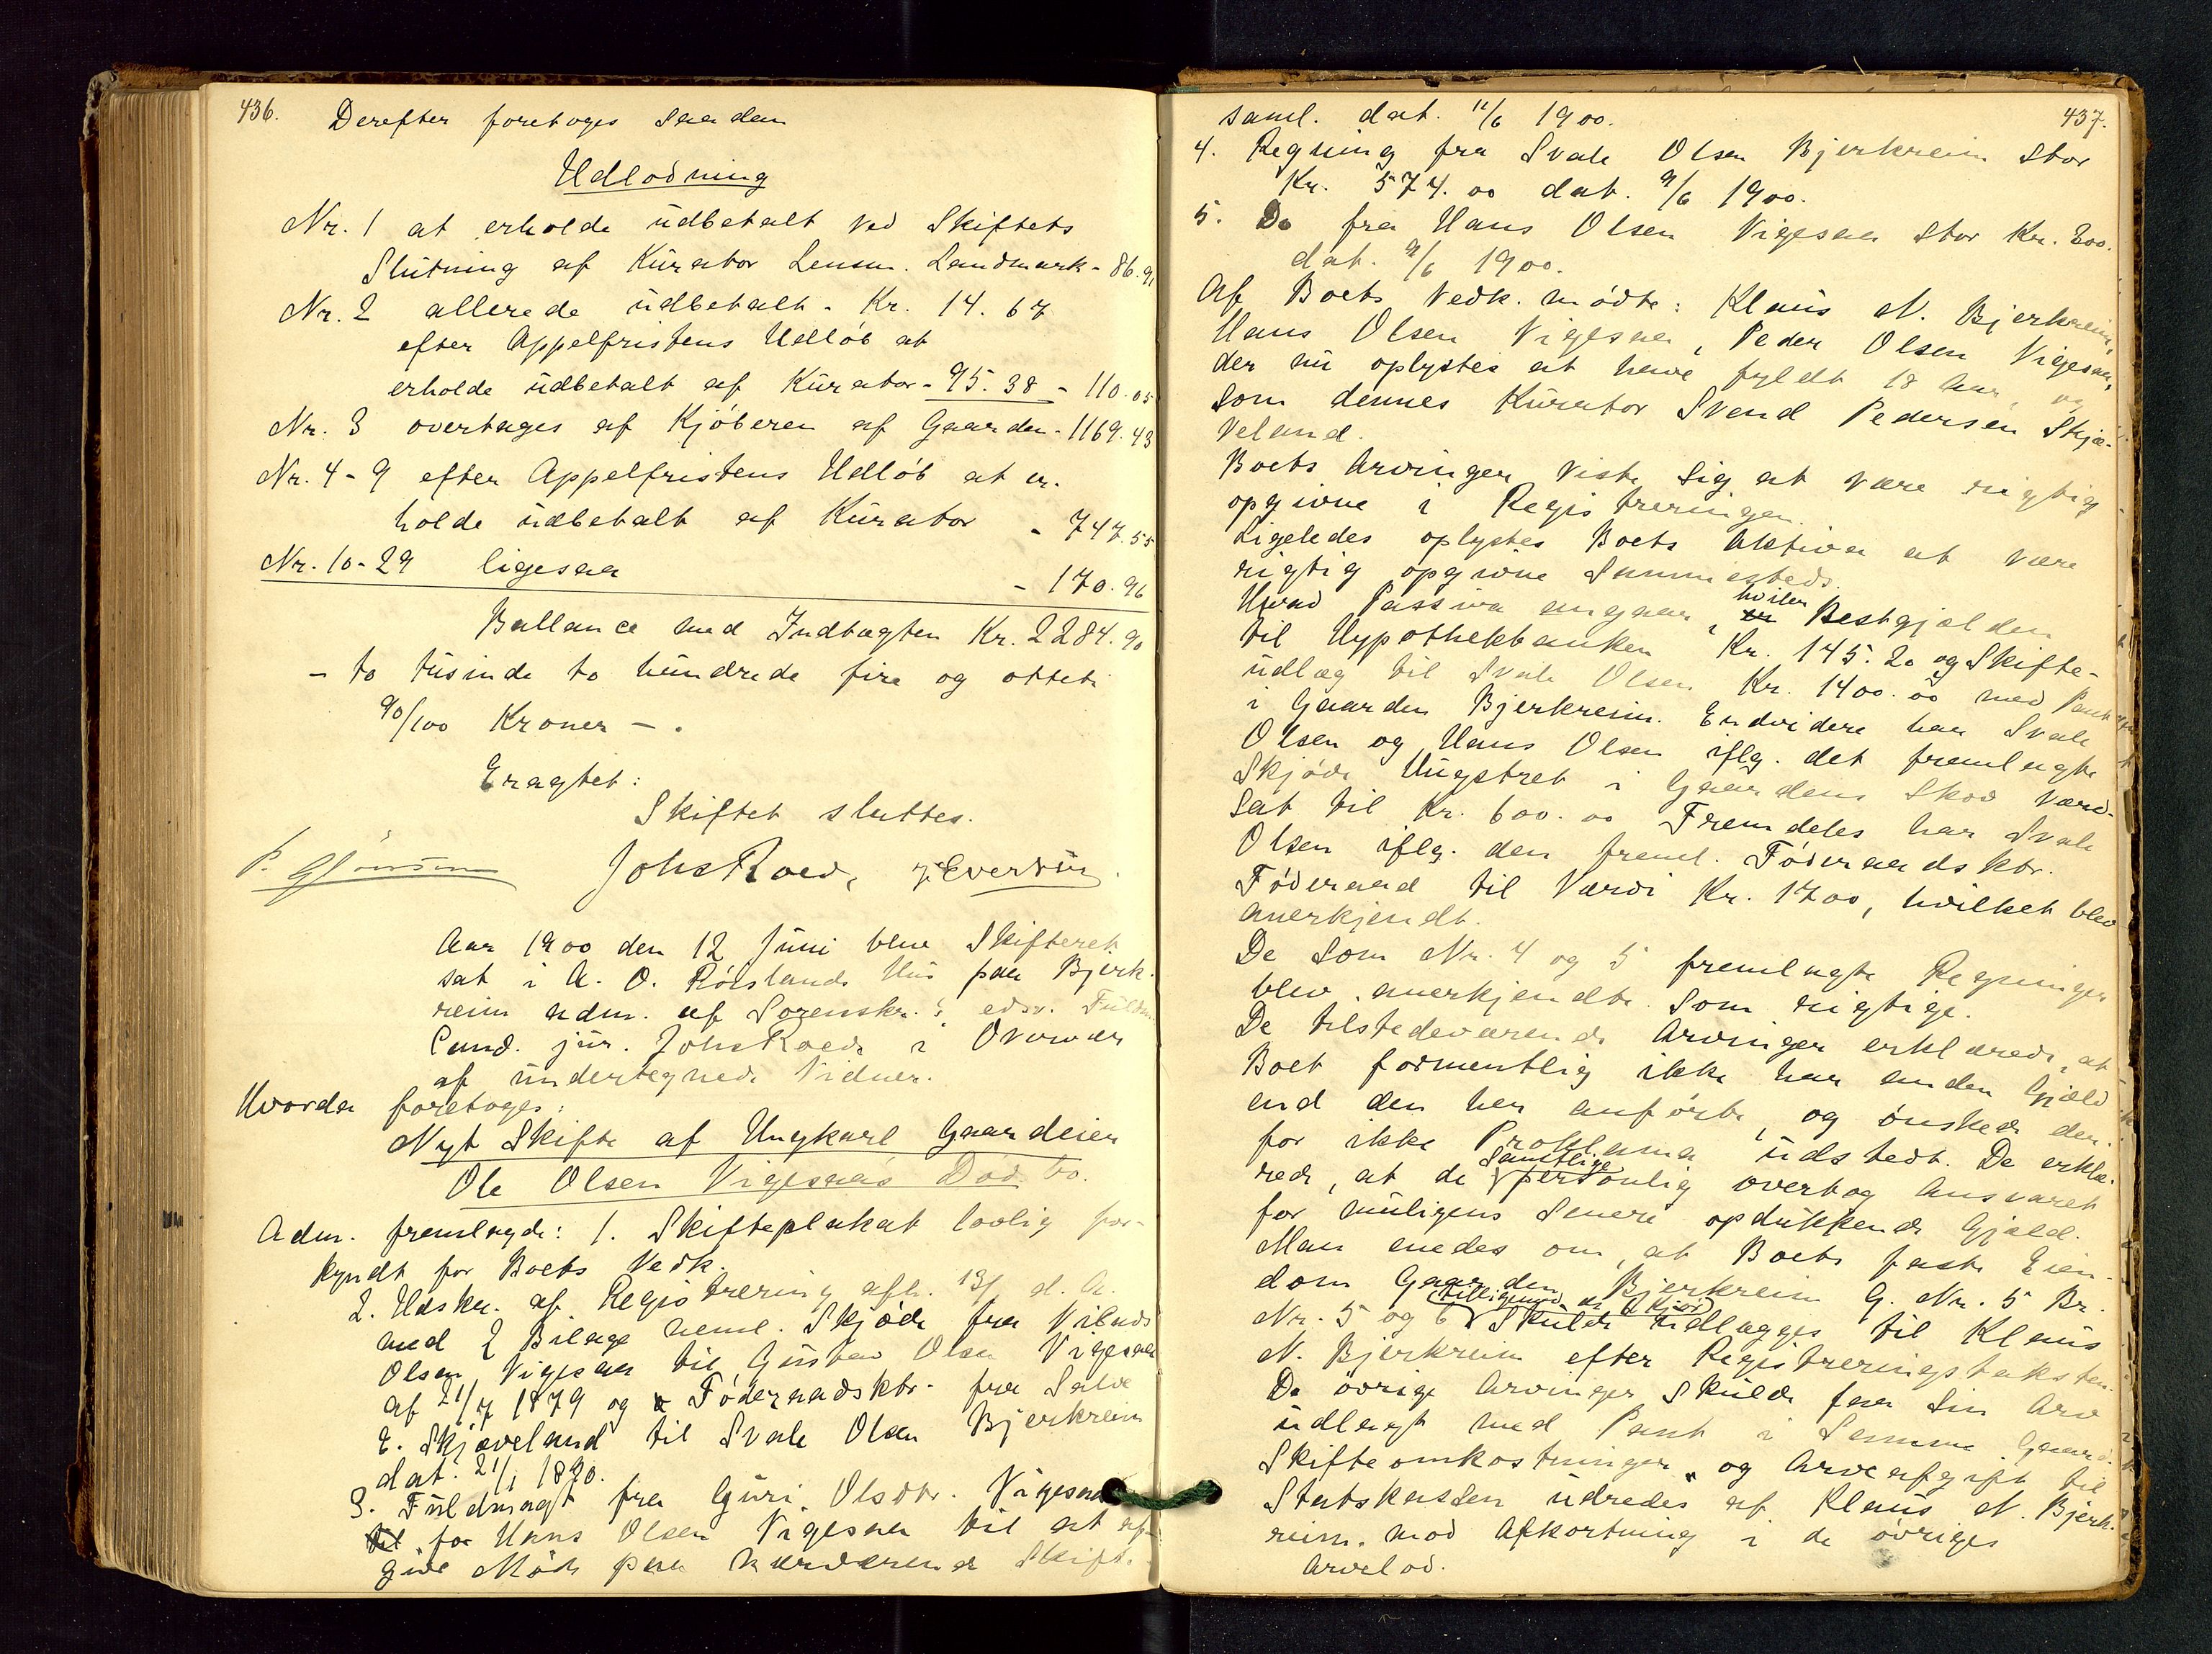 436.
Derefter foretoges saadan
Udlodning
Nr. 1 at erholde udbetalt ved Skiftets
Slutning af Kurator Lensm. Landmark - 86.91
Nr. 2 allerede udbetalt - Kr. 14.67
efter Appelfristens Udløb at
erholde udbetalt af Kurator - 95.38 - 110.05
Nr. 3 overtages af Kjøberen af Gaarden - 1169.43
Nr. 4-9 efter Appelfristens Udløb at er-
holde udbetalt af Kurator - 747.55
Nr. 10-29 ligesaa - 170.96
Ballance med Indtægten Kr. 2284.90
- to tusinde to hundrede fire og otteti
90/100 Kroner - .
Eragtet:
Skiftet sluttes.
Johs Roed,
Aar 1900 den 12 Juni blev Skifteret
sat i A. O. Røislands Hus paa Bjerk-
reim adm. af Sorenskr.s edsv. Fuldm.
Cand. jur. Johs Roed i Overvær
af undertegnede Vidner.
Hvorda foretoges:
Nyt Skifte af Ungkarl Gaardeier
Ole Olsen Vigesaas Dødsbo.
Adm. fremlagde: 1. Skifteplakat lovlig for-
kyndt for Boets Vedk.
2. Udskr. af Registrering afh. 13/ d. A.
med 2 Bilage neml. Skjøde fra
Olsen Vigesaa til Gustav Olsen Vigesaa
af 21/7 1879 og Føderaadsktr. fra Salve
E. Skjæveland til Svale Olsen Bjerkreim
dat. 21/1 1890.
3. Fuldmagt fra Guri Olsdtr. Vigesaa
til for Hans Olsen Vigesaa til at af-
give Møde paa nærværende Skifte-
437.
saml. dat. 11/6 1900.
4. Regning fra Svale Olsen Bjerkreim stor
Kr. 574.00 dat. 9/6 1900.
5. Do fra Hans Olsen Vigesaa stor Kr. 200.
dat. 9/6 1900.
Af Boets Vedk. mødte: Klaus N. Bjerkreim,
Hans Olsen Vigesaa, Peder Olsen Vigesaa,
der nu oplystes at have fyldt 18 Aar, og
som dennes Kurator Svend Pedersen Skjæ-
veland.
Boets Arvinger viste sig at være rigtig
opgivne i Registreringen.
Ligeledes oplystes Boets Aktiva at være
rigtig opgivne sammesteds.
Hvad Passiva angaar, er hviler Restgjælden
til Hypothekbanken Kr. 145.20 og Skifte-
udlæg til Svale Olsen Kr. 1400.00 med Pant
i Gaarden Bjerkreim. Endvidere har Svale
Olsen og Hans Olsen iflg. det fremlagte
Skjøde Hugstret i Gaardens Skov værd-
sat til Kr. 600.00 Fremdeles har Svale
Olsen iflg. den freml. Føderaadsktr.
Føderaad til Værdi Kr. 1700, hvilket blev
anerkjendt.
De som Nr. 4 og 5 fremlagte Regninger
blev anerkjendte som rigtige.
De tilstedeværende Arvinger erklærede, at
Boet formentlig ikke har anden Gjæld
end den her anførte, og ønskede der-
for ikke Proklama udstedt. De erklæ-
rede, at de samtlige personlig overtog Ansvaret
for muligens senere opdukkende Gjæld.
Man enedes om, at Boets faste Eien-
dom Gaarden Bjerkreim G. Nr. 5 Br.
Nr. 5 og 6 skulde udlægges til Klaus
N. Bjerkreim efter Registreringstaksten.
De øvrige Arvinger skulde faa sin Arv
udlagt med Pant i samme Gaard.
Skifteomkostninger og Arveafgift til
Statskassen udredes af Klaus N. Bjerk-
reim, mod Afkortning i de øvriges
Arvelod.